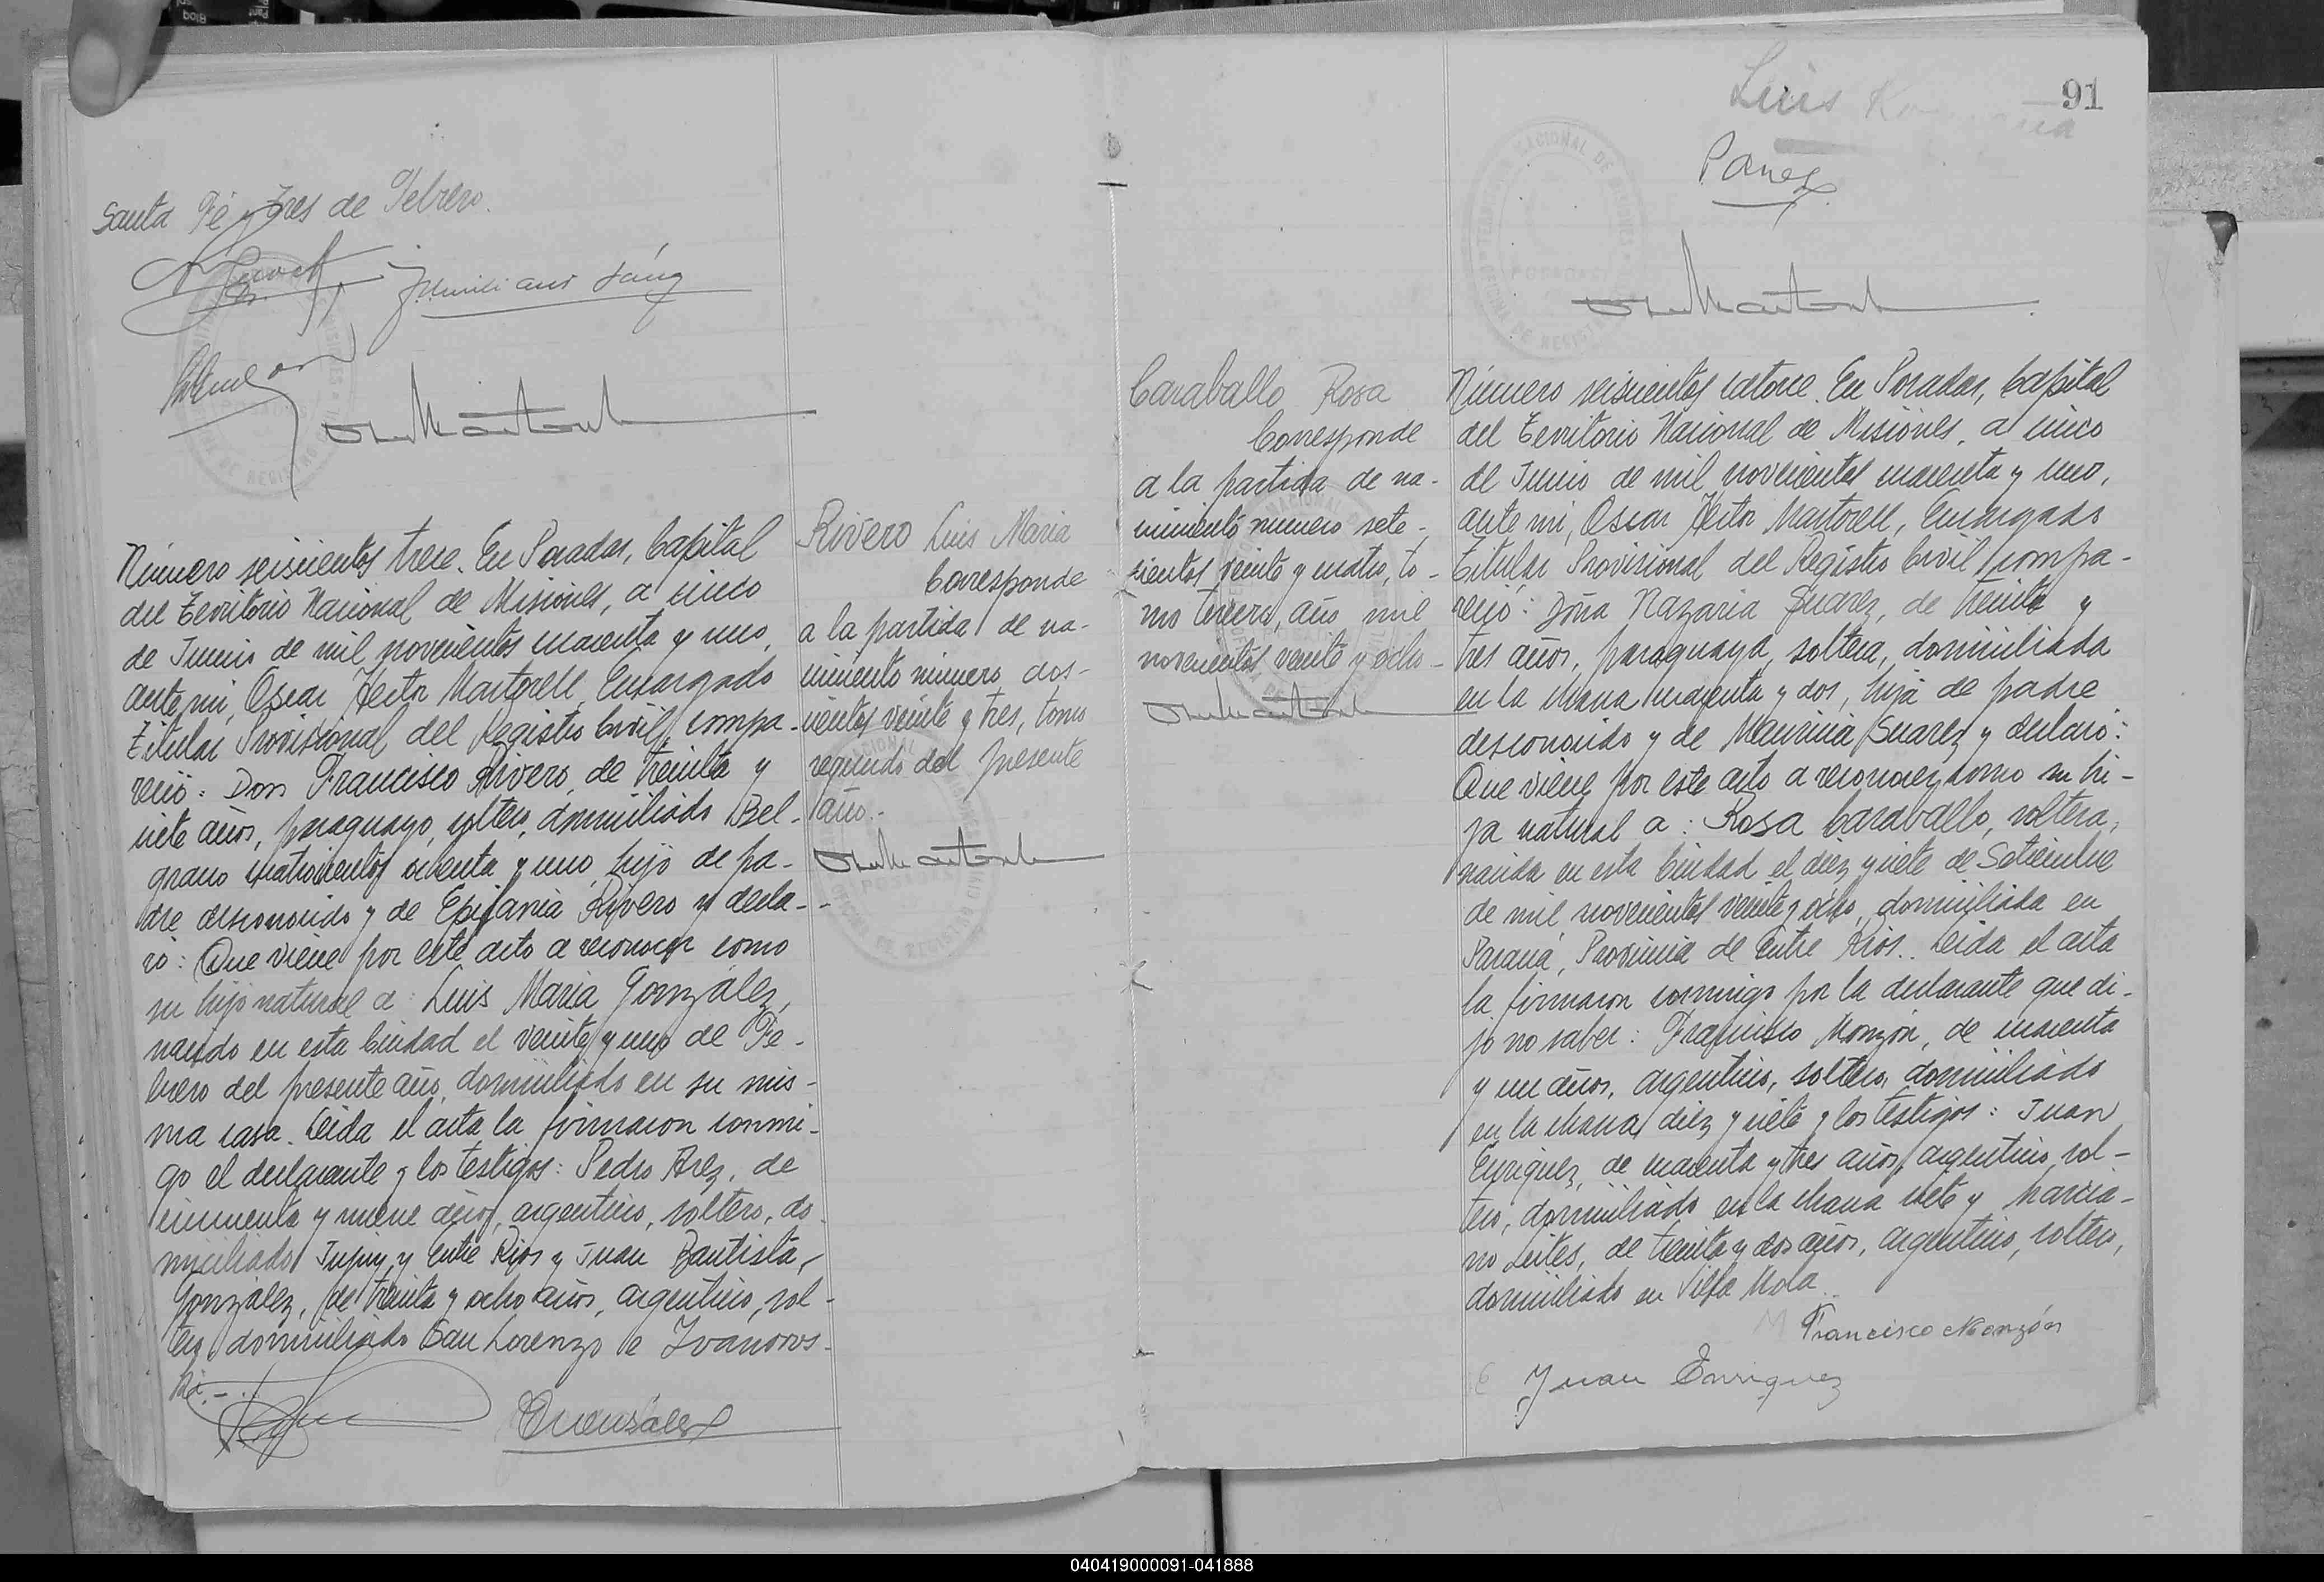 Santa Fé y Tres de Febrero.
Número seiscientos trece. En Posadas, Capital
del Territorio Nacional de Misiones, a cinco
de Junio de mil novecientos cuarenta y uno,
ante mi, Oscar Hector Martorell, Encargado
Titular Provisional del Registro Civil, compa-
reció: Don Francisco Rivero, de treinta y
siete años, paraguayo, soltero, domiciliado Bel-
grano cuatrocientos ochenta y uno, hijo de pa-
dre desconocido y de Epifania Rivero y decla-
ró: Que viene por este acto a reconocer como
su hijo natural a: Luis María González,
nacido en esta Ciudad el veinte y uno de Fe-
brero del presente año, domiciliado en su mis-
ma casa. Leida el acta la firmaron conmi-
go el declarante y los testigos: Pedro Arez, de
cincuenta y nueve años, argentino, soltero, do-
miciliado Jujuy y Entre Rios y Juan Bautista
González, de treinta y ocho años, argentino, sol-
tero, domiciliado San Lorenzo e Ivanows-
ki.-
Rivero Luis Maria
Corresponde
a la partida de na-
cimiento número dos-
cientos veinte y tres, tomo
segundo del presente
año.-
91
Luis
Caraballo Rosa
Corresponde
a la partida de na-
cimiento numero sete-
cientos veinte y cuatro, to-
mo tercero, año mil
novecientos veinte y ocho-
Número seiscientos catorce. En Posadas, Capital
del Territorio Nacional de Misiones, a cinco
de Junio de mil novecientos cuarenta y uno,
ante mi, Oscar Hector Martorell, Encargado
Titular Provisional del Registro Civil compa-
reció: Doña Nazaria Suarez, de treinta y
tres años, paraguaya, soltera, domiciliada
en la chacra cuarenta y dos, hija de padre
desconocido y de Mauricia Suarez y declaró:
Que viene por este acto a reconocer como su hi-
ja natural a: Rosa Caraballo, soltera,
nacida en esta Ciudad el diez y siete de Setiembre
de mil novecientos veinte y ocho, domiciliada en
Paraná, Provincia de Entre Rios. Leida el acta
la firmaron conmigo por la declarante que di-
jo no saber: Francisco Monzón, de cuarenta
y un años, argentino, soltero, domiciliado
en la chacra diez y siete y los testigos: Juan
Enriquez, de cuarenta y tres años, argentino, sol-
tero, domiciliado en la chacra siete y Marcia-
no Leites, de treinta y dos años, argentino, soltero,
domiciliado en Villa Mola.
Francisco Monzón
Juan Enriquez
040419000091-041888